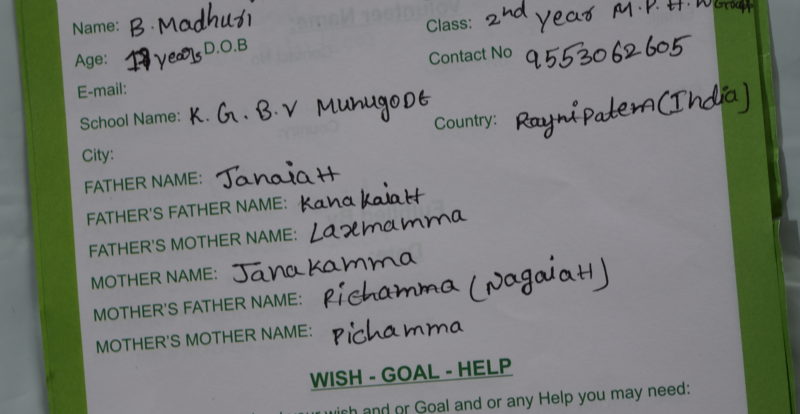 Name: B. Madhuri Class: 2nd year M.P.H.W Group
Age: 17 years D.O.B Contact No 9553062605
E-mail:
School Name: K.G.B.V MunugoDE Country: RayniPatem (India)
City:
FATHER NAME: JanaiaH
FATHER'S FATHER NAME: KanaKaiaH
FATHER'S MOTHER NAME: Laxmamma
MOTHER NAME: JanaKamma
MOTHER'S FATHER NAME: Pichamma (NagaiaH)
MOTHER'S MOTHER NAME: Pichamma
WISH - GOAL - HELP
your wish and or Goal and or any Help you may need: